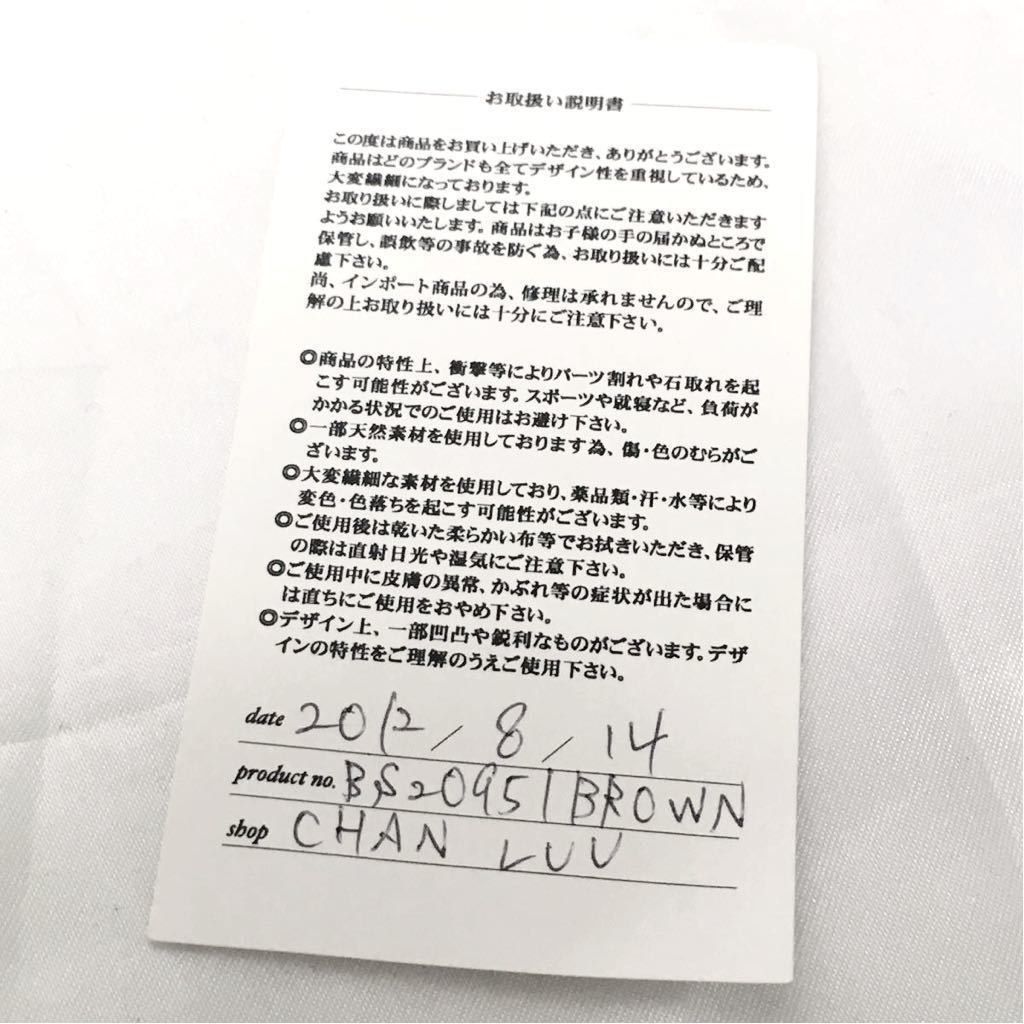 お取扱い説明書
この度は商品をお買い上げいただき、ありがとうございます。
商品はどのブランドも全てデザイン性を重視しているため、
大変繊細になっております。
お取り扱いに際しましては下記の点にご注意いただきます
ようお願いいたします。商品はお子様の手の届かぬところで
保管し、誤飲等の事故を防ぐ為、お取り扱いには十分ご配
慮下さい。
尚、インポート商品の為、修理は承れませんので、ご理
解の上お取り扱いには十分にご注意下さい。
◎商品の特性上、衝撃等によりパーツ割れや石取れを起
こす可能性がございます。スポーツや就寝など、負荷が
かかる状況でのご使用はお避け下さい。
◎一部天然素材を使用しております為、傷・色のむらがご
ざいます。
◎大変繊細な素材を使用しており、薬品類・汗・水等により
変色・色落ちを起こす可能性がございます。
◎ご使用後は乾いた柔らかい布等でお拭きいただき、保管
の際は直射日光や湿気にご注意下さい。
◎ご使用中に皮膚の異常、かぶれ等の症状が出た場合に
は直ちにご使用をおやめ下さい。
◎デザイン上、一部凹凸や鋭利なものがございます。デザ
インの特性をご理解のうえご使用下さい。
date 2012/8/14
product no. BS20951BROWN
shop CHAN LUU